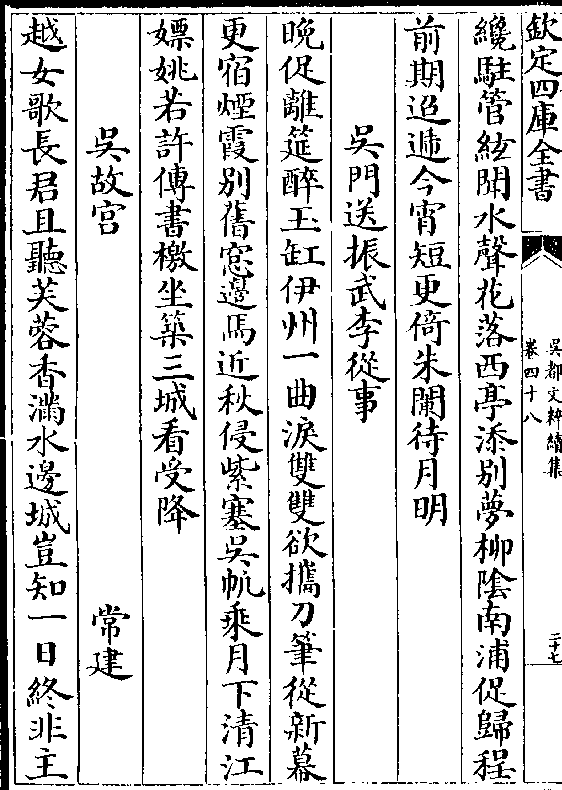 欽定四庫全書
吳都文粹續集
卷四十八
二十七
纔駐管絃開水聲花落西亭添别夢柳陰南浦促歸程
前期迢遞今宵短更倚朱闌待月明
吳門送振武李從事
晚促離筵醉玉缸伊州一曲淚雙雙欲攜刀筆從新幕
更宿煙霞别舊窓邊馬近秋侵紫塞吳帆乘月下清江
嫖姚若許傳書檄坐築三城看受降
吳故宫　常建
越女歌長君且聽芙蓉香滿水邊城豈知一日終非主